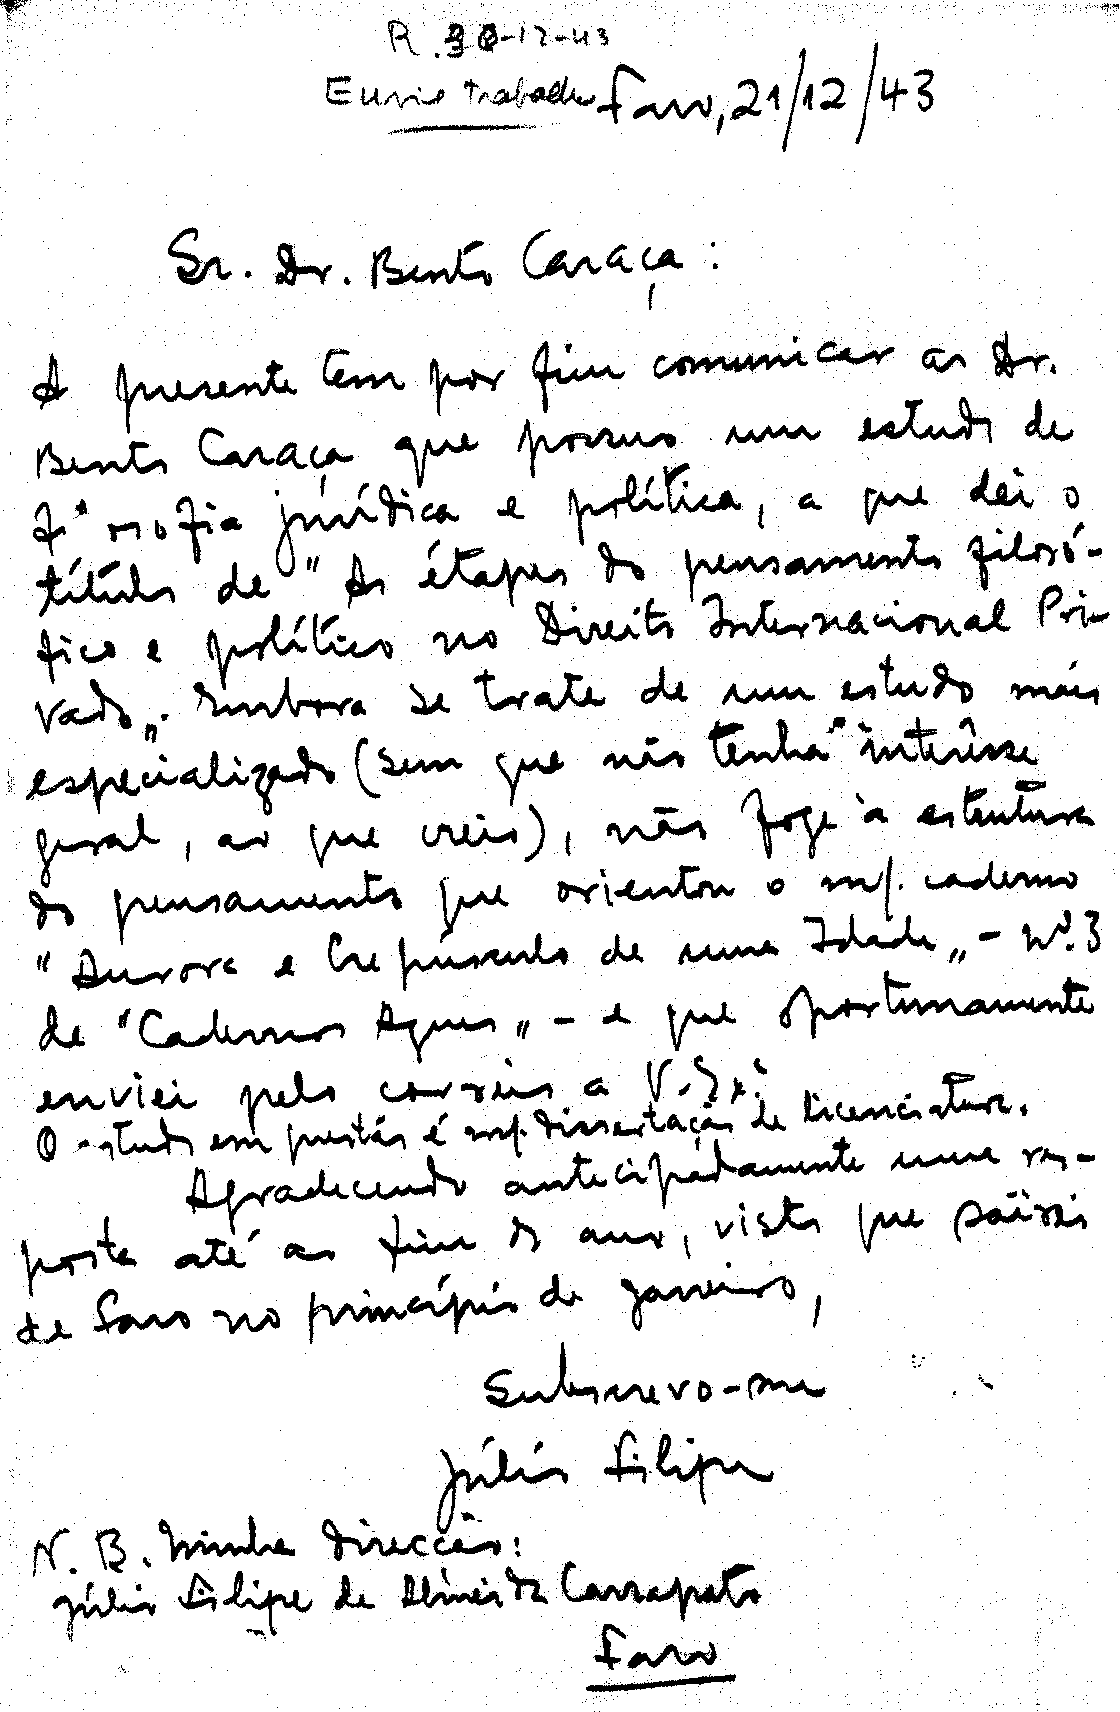 R. 30-12-43
Envie trabalho Faro, 21/12/43
Sr. Dr. Bento Caraça:
A presente tem por fim comunicar ao Dr.
Bento Caraça que possuo um estudo de
filosofia jurídica e política, a que dei o
título de "As étapes do pensamento filosó-
fico e político no Direito Internacional Pri-
vado„. Embora se trate de um estudo mais
especializado (sem que não tenha interêsse
geral, ao que creio), não foge à estrutura
do pensamento que orientou o m/. caderno
"Aurora e Crepúsculo de uma Idade„ - nº. 3
de "Cadernos Agues„ - e que oportunamente
enviei pelo correio a V. Exª
O estudo em questão é m/. dissertação de licenciatura.
Agradecendo antecipadamente uma res-
posta até ao fim do ano, visto que saírei
de Faro no princípio de janeiro,
Subscrevo-me
Júlio Filipe
N. B. Minha direcção:
Júlio Filipe de Almeida Carrapato
Faro